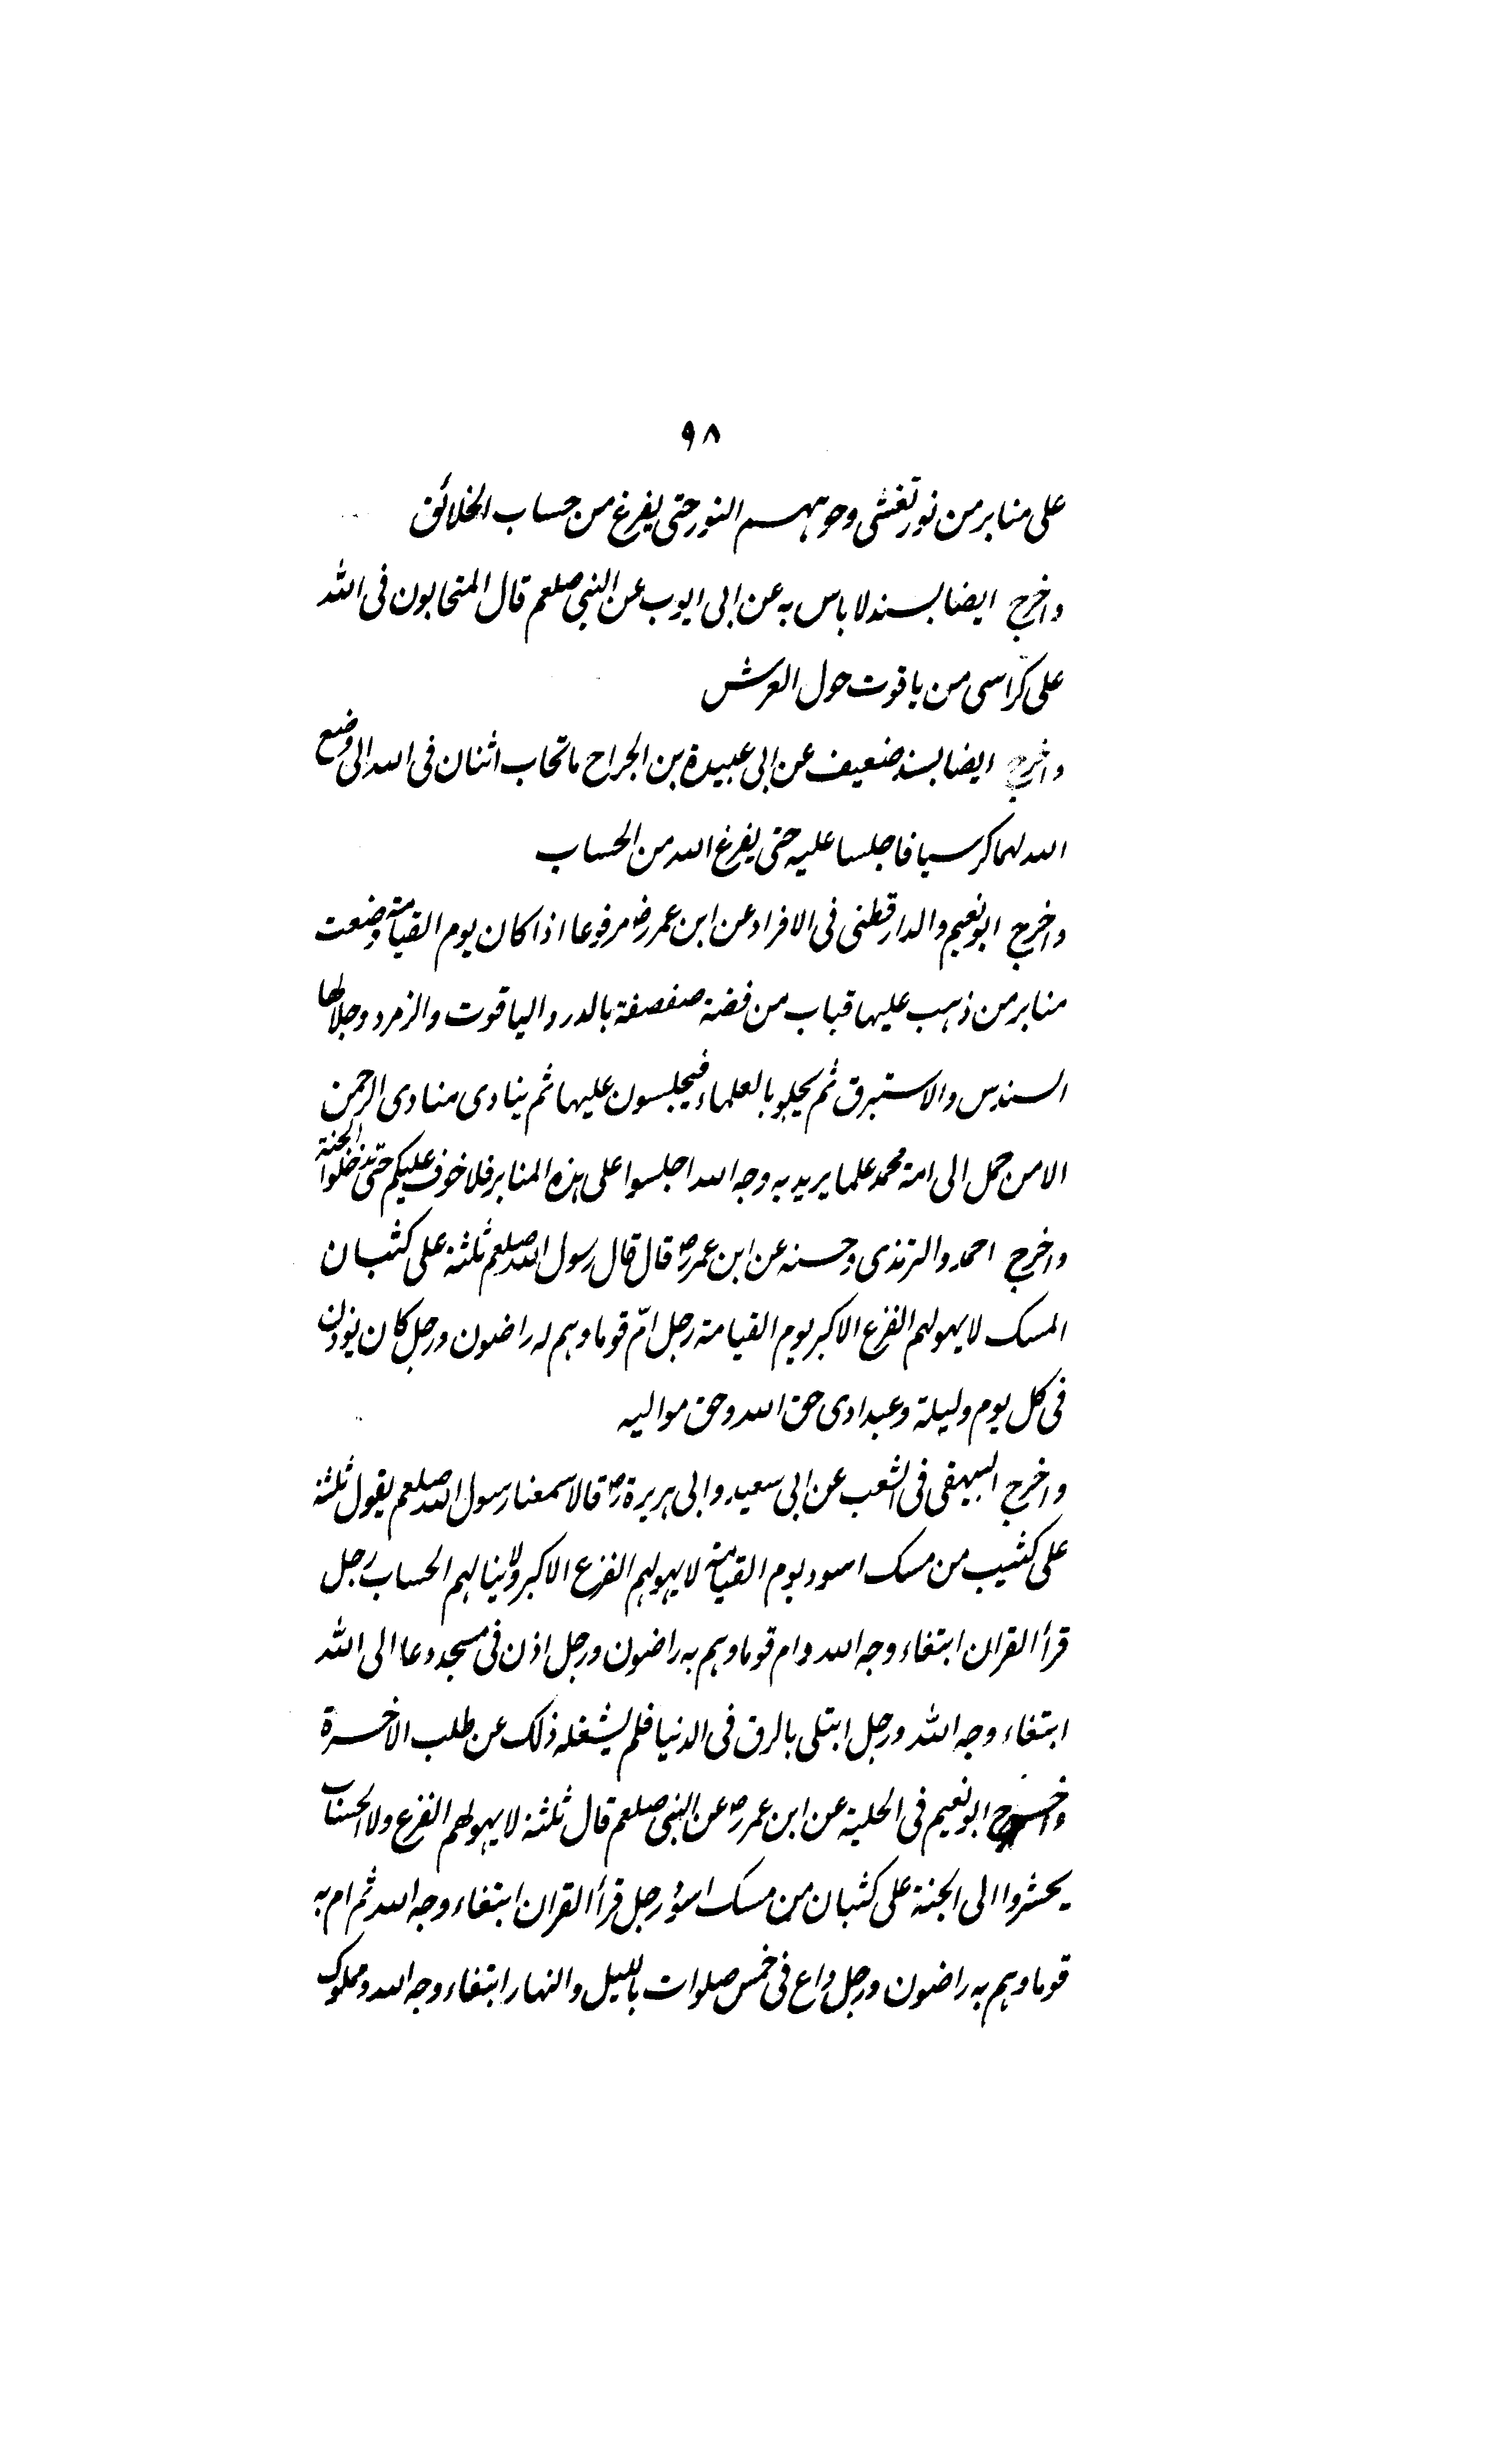 ٩٨
على منابر من نور تغشى وجوههم النور حتى يفرغ من حساب الخلائق
واخرج ايضا بسند لا باس به عن ابى ايوب عن النبى صلعم قال المتحابون فى الله
على كراسى من ياقوت حول العرش
واخرج ايضا بسند ضعيف عن ابى عبيدة بن الجراح ما تحاب اثنان فى الله الى وضع
الله لهما كرسيا فاجلسا عليه حتى يفرغ الله من الحساب
واخرج ابو نعيم والدارقطنى فى الافراد عن ابن عمر رض مرفوعا اذا كان يوم القيامة وضعت
منابر من ذهب عليها قباب من فضة صفصفة بالدر والياقوت والزمرد وجلالها
السندس والاستبرق ثم يحلو بالعلماء فيجلسون عليها ثم ينادى منادى الرحمن
الا من حمل الى امة محمد علما يريد به وجه الله اجلسوا على هذه المنابر فلا خوف عليكم حتى تدخلوا الجنة
واخرج احمد والترمذى وحسنه عن ابن عمر رض قال قال رسول الله صلعم ثلثة على كثبان
المسك لا يهولهم الفزع الاكبر يوم القيامة رجل امّ قوما وهم له راضون ورجل كان يؤذن
فى كل يوم وليلة وعبد ادى حق الله وحق مواليه
واخرج البيهقى فى الشعب عن ابى سعيد وابى هريرة رض قالا سمعنا رسول الله صلعم يقول ثلثة
على كثيب من مسك اسود يوم القيامة لا يهولهم الفزع الاكبر ولا ينالهم الحساب رجل
قرأ القران ابتغاء وجه الله وام قوما وهم به راضون ورجل اذن فى مسجد دعا الى الله
ابتغاء وجه الله ورجل ابتلى بالرق فى الدنيا فلم يشغله ذلك عن طلب الاخرة
واخرج ابو نعيم فى الحلية عن ابن عمر رض عن النبى صلعم قال ثلثة لا يهولهم الفزع ولا الحساب
يحشروا الى الجنة على كثبان من مسك اسود رجل قرأ القران ابتغاء وجه الله ثم ام به
قوما وهم به راضون ورجل داع فى خمس صلوات بالليل والنهار ابتغاء وجه الله ومملوك